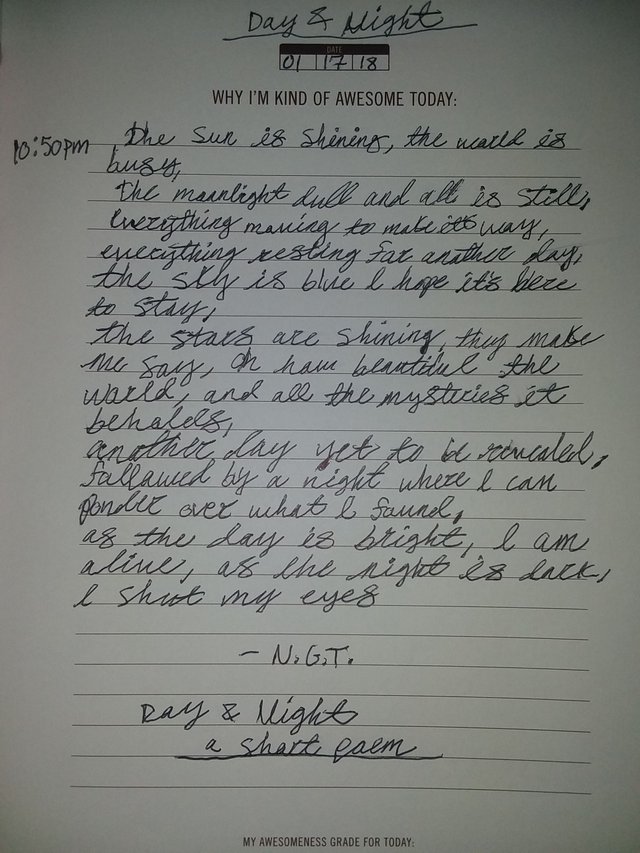 Day & Night
DATE
01 17 18
WHY I'M KIND OF AWESOME TODAY:
10:50pm The Sun is Shining, the world is
busy,
The moonlight dull and all is still,
Everything moving to make its way,
everything resting for another day,
the sky is blue I hope it's here
to stay,
the stars are shining, they make
me say, Oh how beautiful the
world, and all the mysteries it
beholds,
another day yet to be revealed,
followed by a night where I can
ponder over what I found,
as the day is bright, I am
alive, as the night is dark,
I shut my eyes
- N.G.T.
Day & Night
a short poem
MY AWESOMENESS GRADE FOR TODAY: